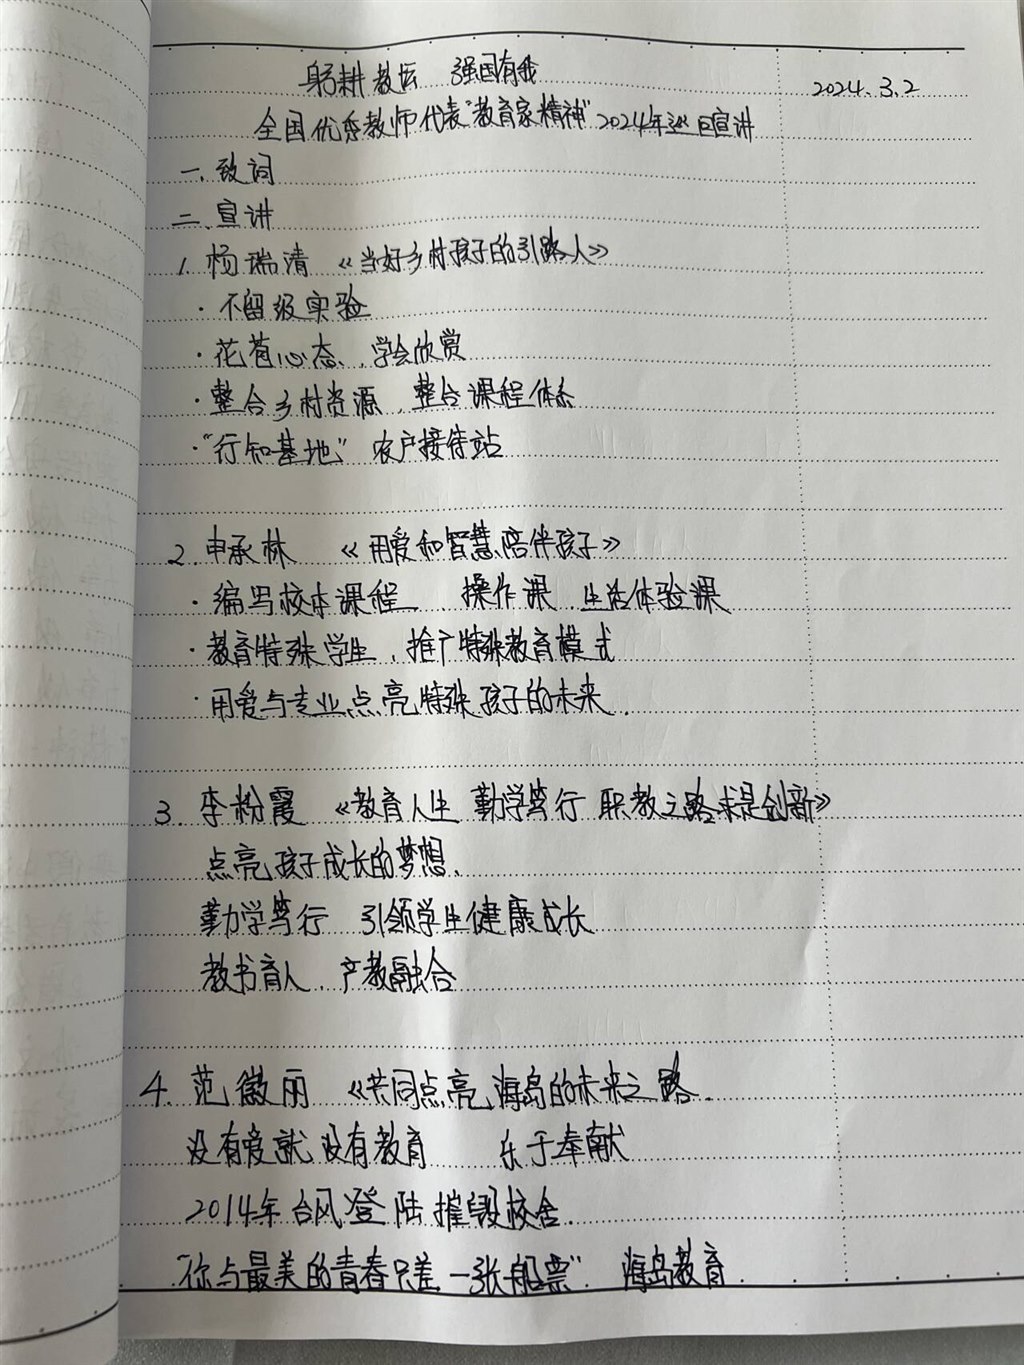 躬耕教坛 强国有我
2024.3.2
全国优秀教师代表"教育家精神"2024年巡回宣讲
一、致词
二、宣讲
1. 杨瑞清 《当好乡村孩子的引路人》
· 不留级实验
· 花苞心态、学会欣赏
· 整合乡村资源、整合课程体系
· "行知基地" 农户接待站
2. 申承林 《用爱和智慧陪伴孩子》
· 编写校本课程、操作课、生活体验课
· 教育特殊学生、推广特殊教育模式
· 用爱与专业点亮特殊孩子的未来.
3. 李粉霞 《教育人生 勤学笃行 职教之路求是创新》
点亮孩子成长的梦想.
勤学笃行 引领学生健康成长
教书育人、产教融合
4. 范徽丽 《共同点亮海岛的未来之路.
没有爱就没有教育 乐于奉献
2014年台风登陆摧毁校舍.
"你与最美的青春只差一张船票" 海岛教育